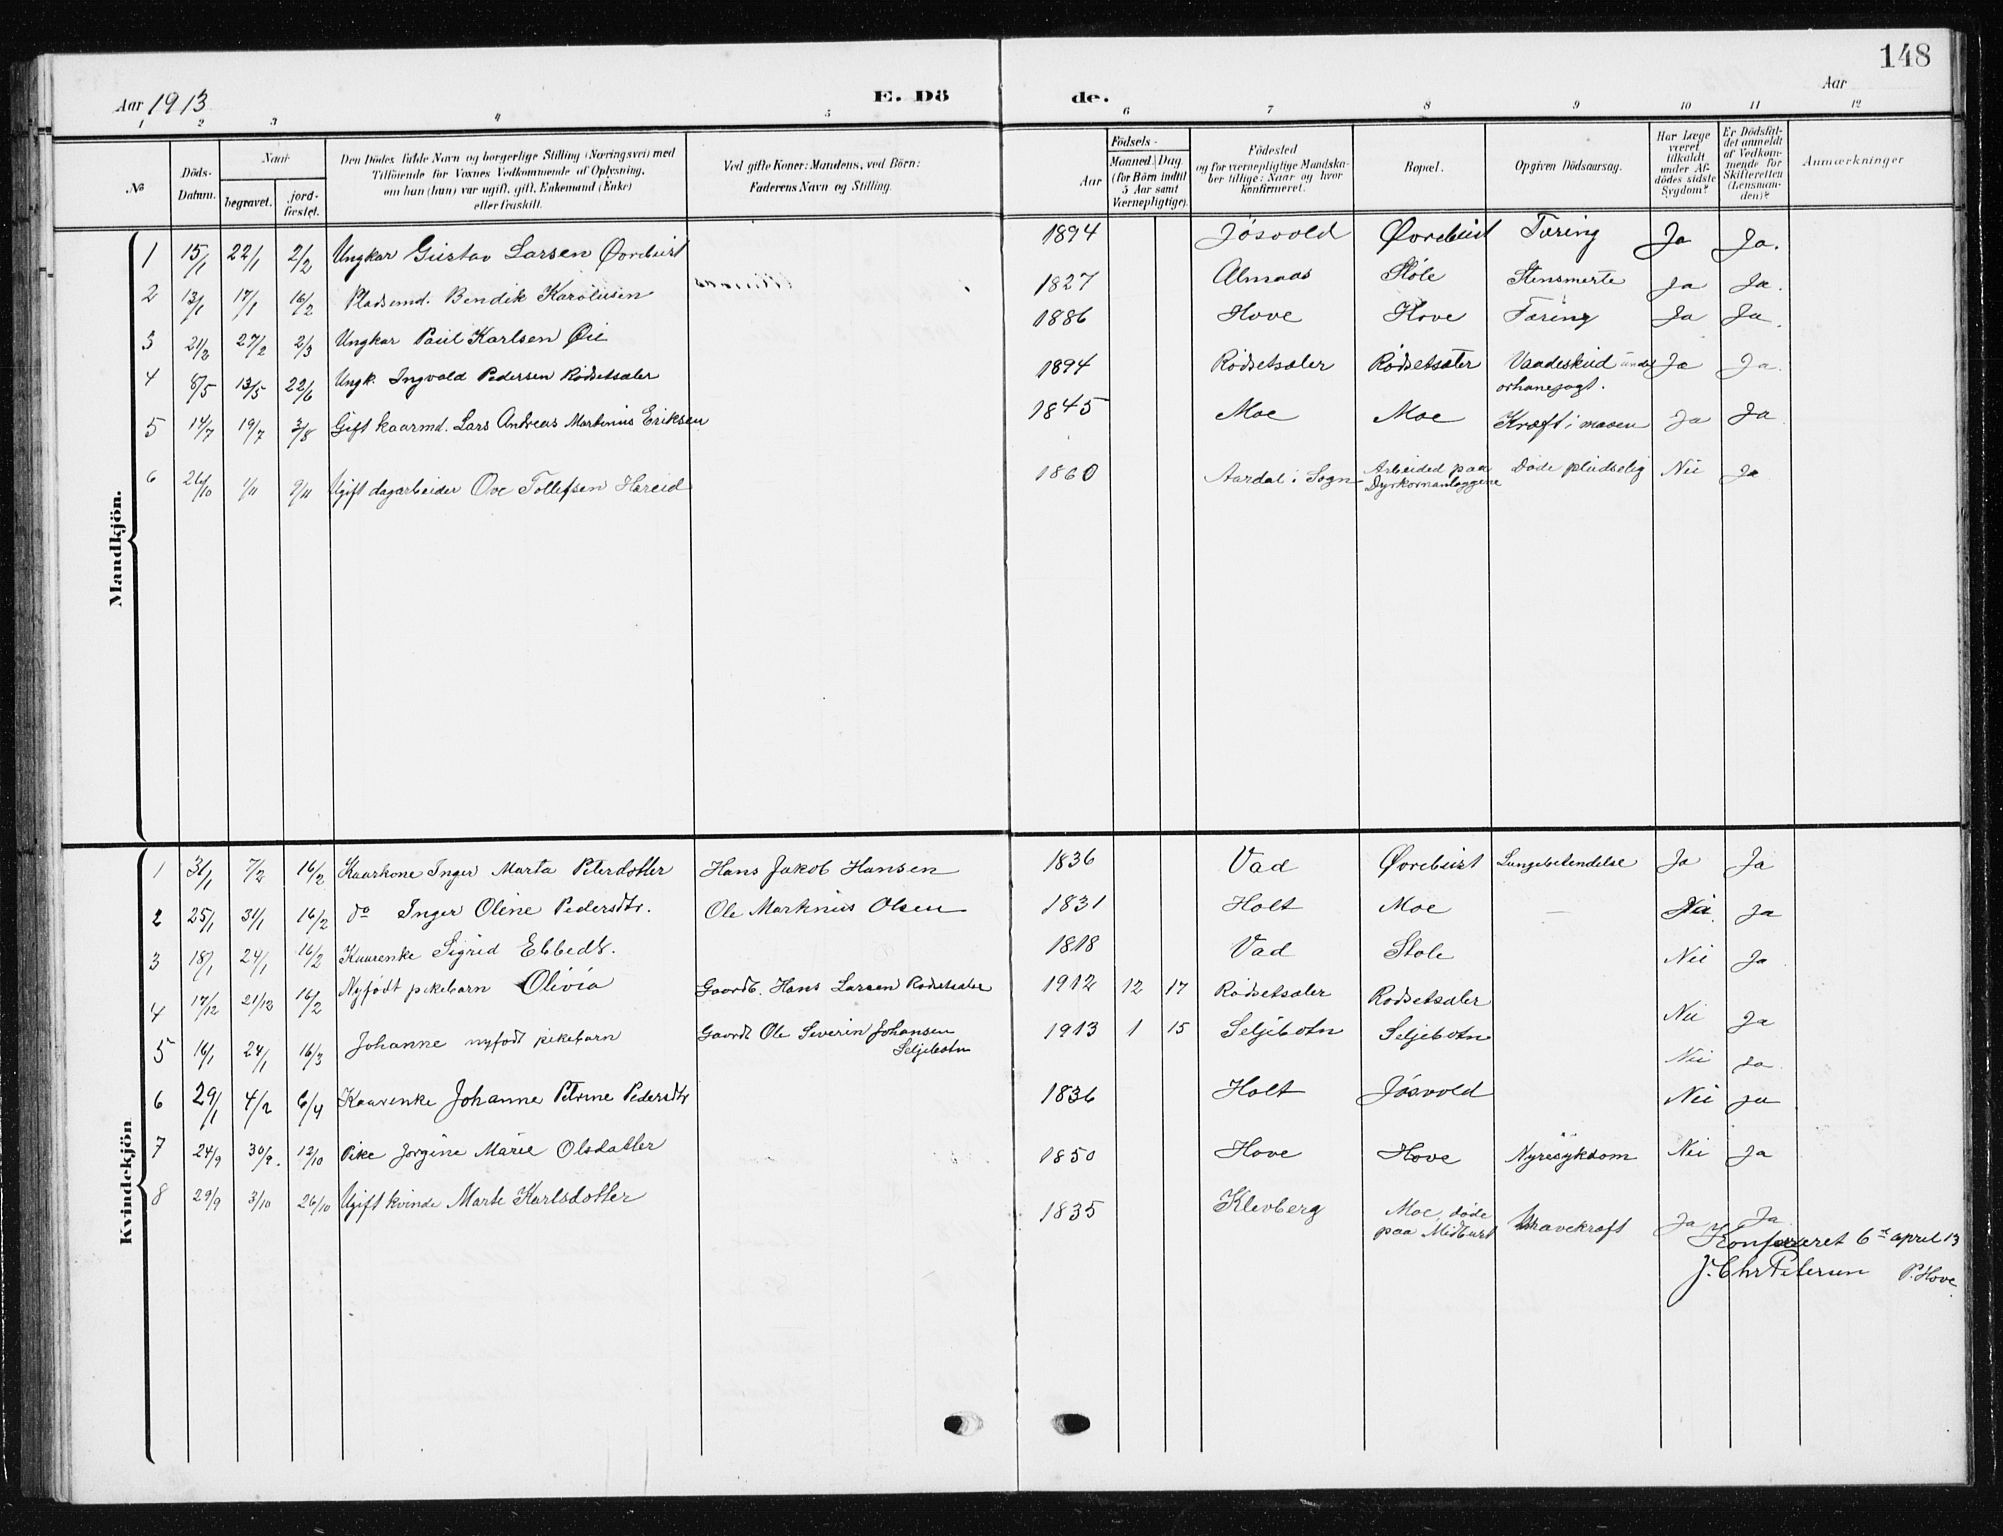 148
Aar 1913 E. Dö de. Aar
1 2 3 4 5 6 7 8 9 10 11 12
№ Döds-Datum. Naar begravet. jord-fæstet. Den Dödes fulde Navn og borgerlige Stilling (Næringsvei) med Tilföiende for Voxnes Vedkommende af Oplysning, om han (hun) var ugift, gift, Enkemand (Enke) eller fraskilt. Ved gifte Koner: Mandens, ved Börn: Faderens Navn og Stilling. Födsels- Aar Maaned Dag (for Börn indtil 5 Aar samt Værnepligtige). Födested og for værnepligtige Mandskaber tillige: Naar og hvor konfirmeret. Bopæl. Opgiven Dödsaarsag. Har Læge været tilkaldt under Afdödes sidste Sygdom? Er Dödsfaldet anmeldt af Vedkommende for Skifteretten (Lensmanden)? Anmærkninger
Mandkjön.
1 15/1 22/1 2/2 Ungkar Gustav Larsen Øvrebust 1894 Jøsvold Øvrebust Tæring Ja Ja.
2 13/1 17/1 16/2 Pladsmd. Bendik Karolusen 1827 Almaas Støle Stensmerte Ja Ja.
3 21/2 27/2 2/3 Ungkar Paul Karlsen Øie 1886 Hove Hove Tæring Ja Ja.
4 8/5 13/5 22/6 Ungk. Ingvald Pedersen Rødsetsæter 1894 Rødsetsæter Rødsetsæter Vaadeskud under orhanejagt. Ja Ja.
5 14/7 19/7 3/8 Gift kaarmd. Lars Andreas Martinius Eriksen 1845 Moe Moe Kræft i maven Ja Ja
6 26/10 1/11 9/11 Ugift dagarbeider Ove Tollefsen Hareid 1860 Aardal i Sogn Arbeided paa Dyrkornanlæggene Døde pludselig Nei Ja
Kvindekjön
1 31/1 7/2 16/2 Kaarkone Inger Marta Petersdotter Hans Jakob Hansen 1836 Vad Øvrebust Lungebetendelse Ja Ja
2 25/1 31/1 16/2 do Inger Oline Pedersdtr. Ole Martinus Olsen 1831 Holt Moe — Nei. Ja
3 18/1 24/1 16/2 Kaarenke Sigrid Ebbedtr. 1818 Vad Støle Nei Ja
4 17/12 21/12 16/2 Nyfødt pikebarn Olivia Gaardb. Hans Larsen Rødsetsæter 1912 12 17 Rødsetsæter Rødsetsæter Nei Ja
5 16/1 24/1 16/3 Johanne nyfødt pikebarn Gaardb Ole Severin Johansen Seljebotn 1913 1 15 Seljebotn Seljebotn Nei Ja
6 29/1 4/2 6/4 Kaarenke Johanne Petrine Pedersdtr 1836 Holt Jøsvold Nei Ja
7 24/9 30/9. 12/10 Pike Jørgine Marie Olsdatter 1850 Hove Hove Nyresykdom Nei Ja
8 29/9 3/10 26/10 Ugift kvinde Marte Karlsdotter 1835 Klevberg Moe, døde paa Midtbust Mavekræft Ja Ja
Konfereret 6te april 13
J. Chr Petersen P. Hove